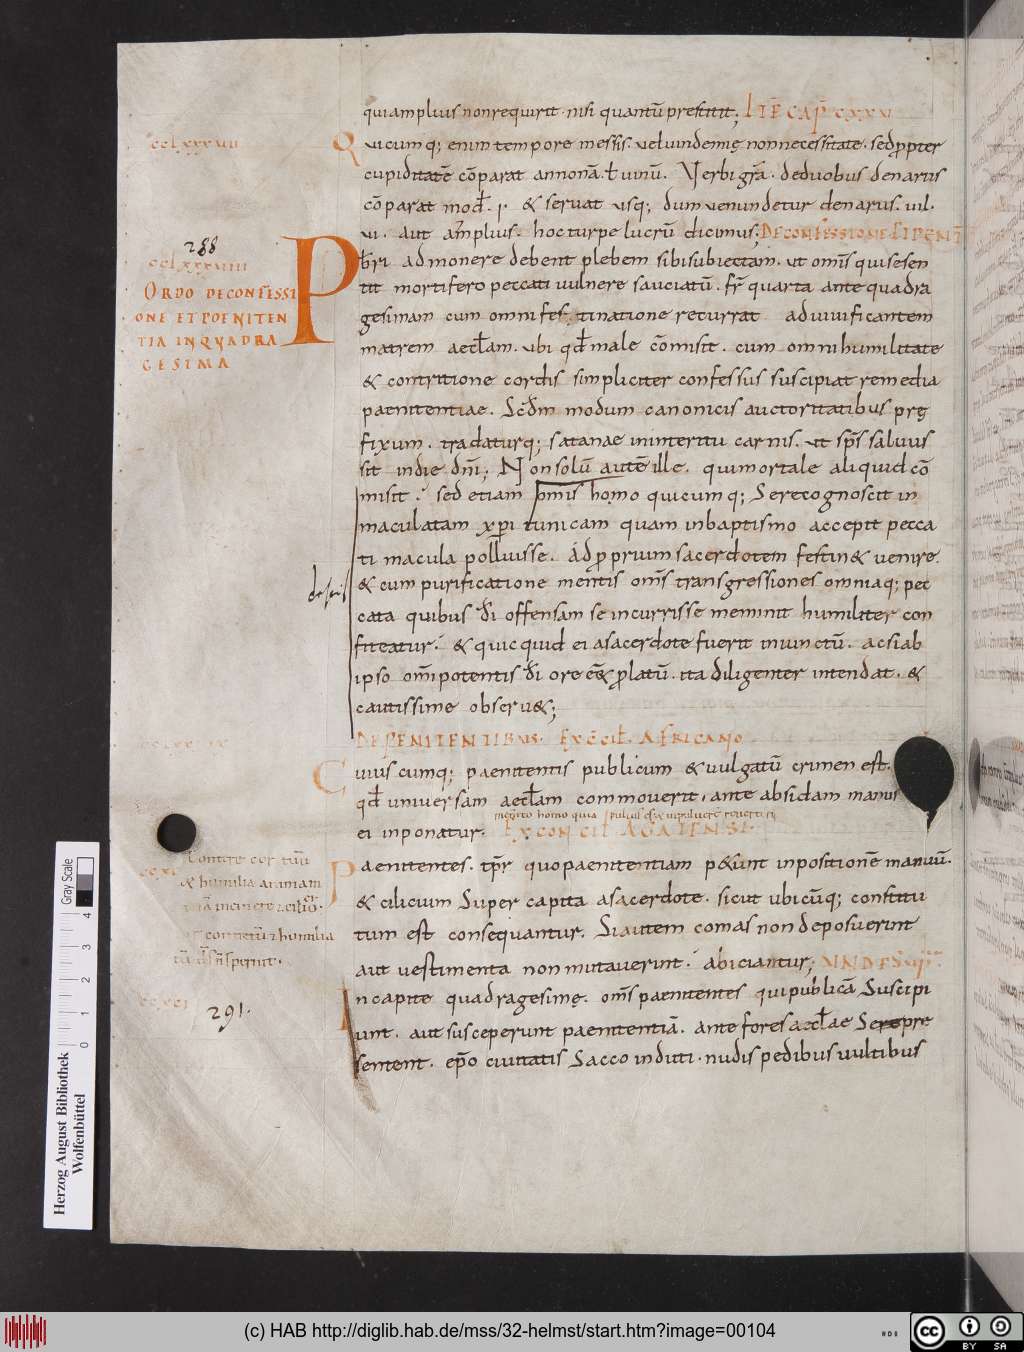 qui amplius non requirit · nisi quantū prestitit; ITĒ CAP̄ CXXV
cclxxxvii
Quicumq; enim tempore messis · vel uindemię non necessitate · sed ꝓpter
cupiditatē cōparat annonā · ł uinū · Verbi gr̄a · de duobus denarus
cōparat mod̄ · I · & seruat usq; dum uenundetur denarus · IIII ·
VI · aut amplius · hoc turpe lucrū dicimus; DE CONFESSIONE
288
cclxxxviii
ORDO DE CONFESSI
ONE ET POENITEN
TIA IN QVADRA
GESIMA
Pb̄ri admonere debent plebem sibi subiectam · ut om̄is qui se sen
tit mortifero peccati uulnere sauciatū · fr̄ quarta ante quadra
gesimam cum omni festinatione recurrat ad uiuificantem
matrem aeccl̄am · ubi qd̄ male cōmisit · cum omni humilitate
& contritione cordis simpliciter confessus suscipiat remedia
paenitentiae · Scd̄m modum canonicis auctoritatibus prę
fixum · tradaturq; satanae in interitu carnis · ut sp̄s saluus
sit in die dn̄i; Non solū autē ille · qui mortale aliquid cō
misit · sed etiam omnis homo quicumq; Se recognoscit in
maculatam xpi tunicam quam in baptismo accepit pecca
ti macula polluisse · Ad ꝓprium sacerdotem festin& uenire ·
& cum purificatione mentis om̄s transgressiones omniaq; pec
cata quibus d̄i offensam se incurrisse meminit humiliter con
fiteatur · & quicquid ei a sacerdote fuerit iniunctū · ac si ab
ipso om̄ipotentis d̄i ore eēt ꝓlatū · ita diligenter intendat · &
cautissime obseru&;
DE PENITENTIBUS · EX C̄CIL̄ · AFRICANO
Cuiuscumq; paenitentis publicum & uulgatū crimen est ·
qd̄ uniuersam aeccl̄am commouerit · ante absidam manus
ei inponatur · EX CONCIL̄ AGATENSI ·
Contere cor tuū
& humilia animam
Paenitentes · tp̄r quo paenitentiam p&unt inpositionē manuū ·
& cilicium Super capita a sacerdote · sicut ubicūq; constitu
tum est consequantur · Si autem comas non deposuerint
aut uestimenta non mutauerint · abiciantur; UNDE SUP̄
ccxci
291 ·
In capite quadragesimę · om̄s paenitentes qui publicā Suscipi
unt · aut susceperunt paenitentiā · ante fores aeccl̄ae Se repre
sentent · ep̄o ciuitatis Sacco induti · nudis pedibus uultibus
Herzog August Bibliothek
Wolfenbüttel
0 1 2 3 4
Gray Scale
(c) HAB http://diglib.hab.de/mss/32-helmst/start.htm?image=00104
cc BY SA